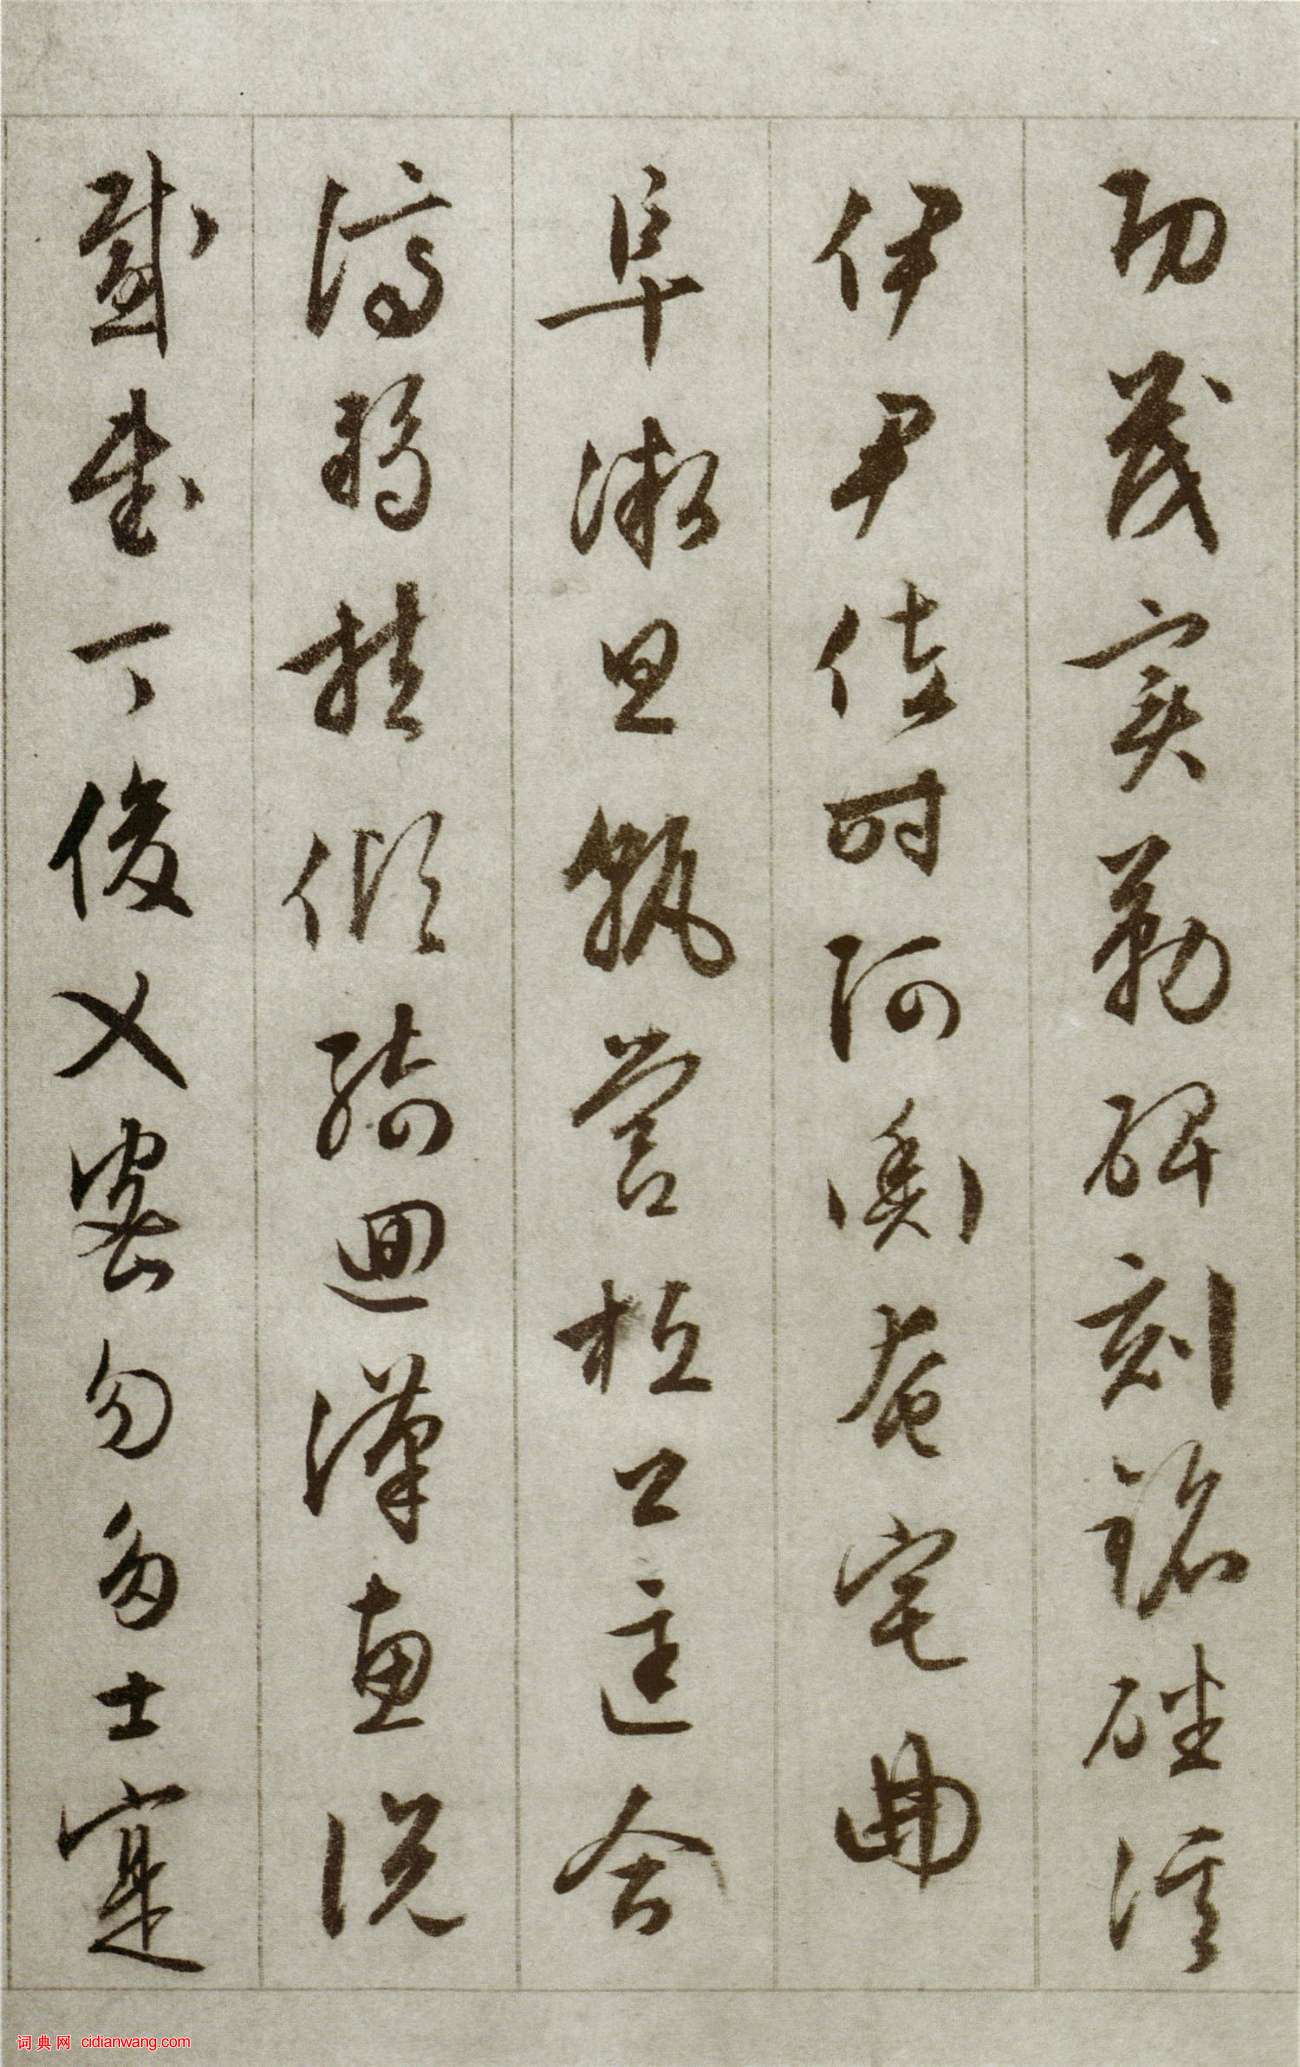 功茂實勒碑刻銘磻溪
伊尹佐時阿衡奄宅曲
阜微旦孰營桓公匡合
濟弱扶傾綺迴漢惠說
感武丁俊乂密勿多士寔
词典网 cidianwang.com